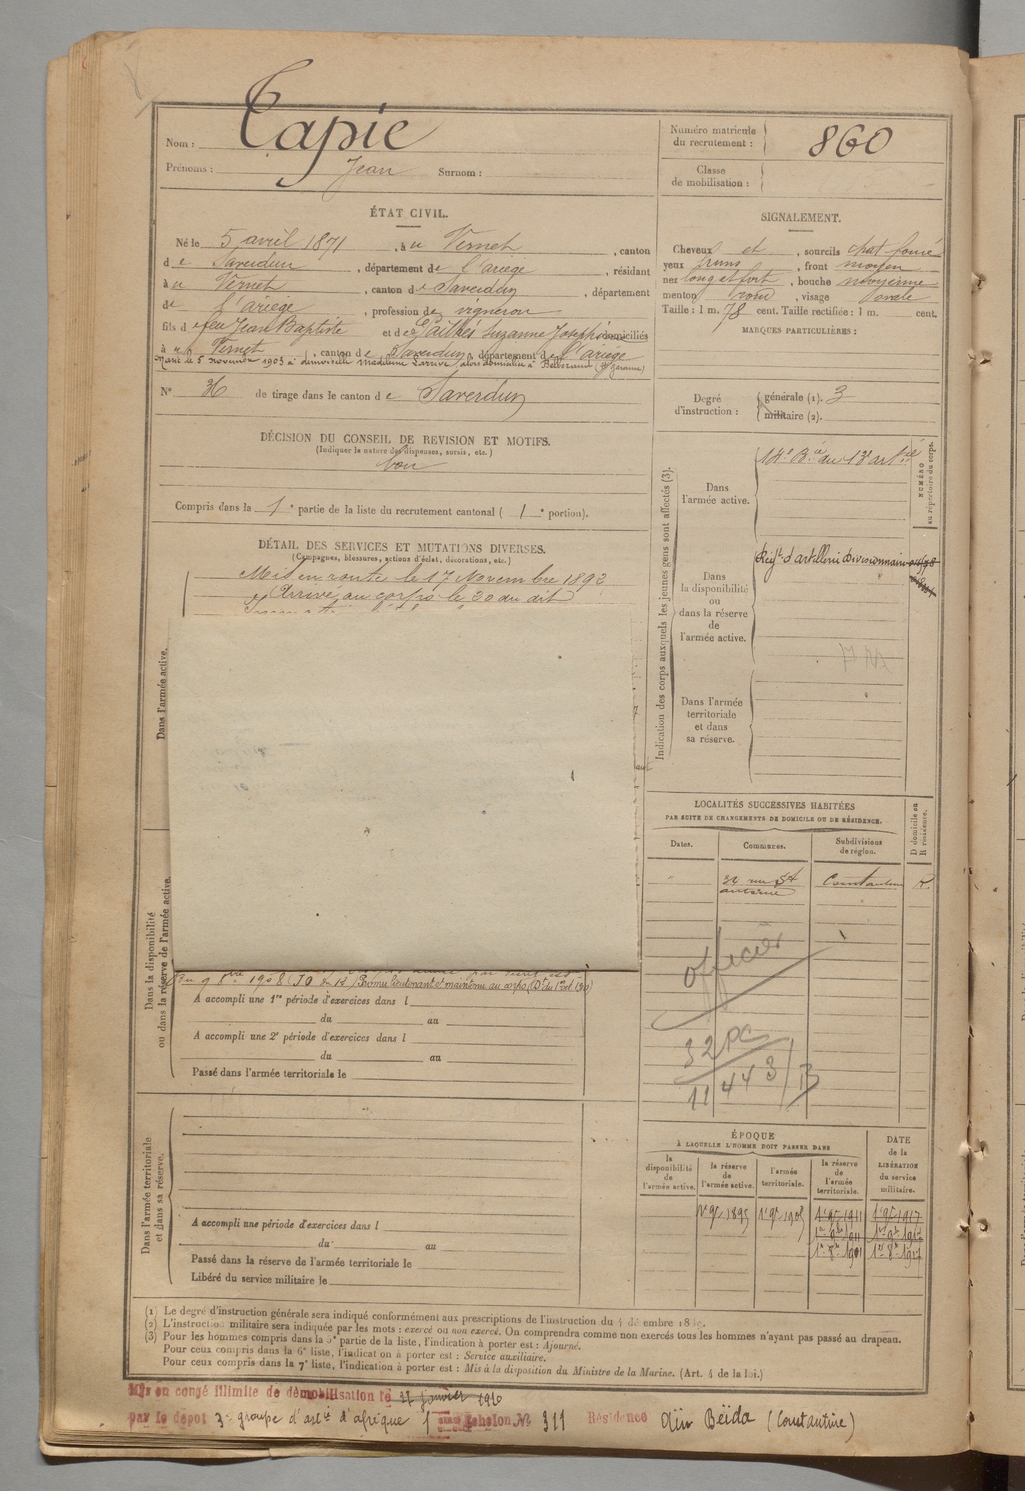 Nom : Tapie
Prénoms : Jean Surnom :
Numéro matricule du recrutement : 860
Classe de mobilisation :
ÉTAT CIVIL.
Né le 5 avril 1871, à u Vernet, canton
d e Saverdun, département de l'ariège, résidant
à u Vernet, canton de Saverdun, département
de l'ariège, profession de vigneron
fils de feu Jean Baptiste et de Suzanne Josephe domiciliés
à u Vernet, canton de Saverdun, département de l'ariège
Marié le 5 novembre 1903 à demoiselle Madeleine alors domiciliée à
N° 36 de tirage dans le canton de Saverdun
SIGNALEMENT.
Cheveux et, sourcils chat foncé
yeux bruns, front moyen
nez long et fort, bouche moyenne
menton rond, visage ovale
Taille : 1 m. 78 cent. Taille rectifiée : 1 m. cent.
MARQUES PARTICULIÈRES :
Degré d'instruction : générale (1). 3
militaire (2).
DÉCISION DU CONSEIL DE REVISION ET MOTIFS.
(Indiquer la nature des dispenses, sursis, etc.)
bon
Compris dans la 1e partie de la liste du recrutement cantonal ( 1e portion).
DÉTAIL DES SERVICES ET MUTATIONS DIVERSES.
(Campagnes, blessures, actions d'éclat, décorations, etc.)
Mis en route le 17 Novembre 1892
Arrivé au corps le 20 du dit
Dans l'armée active.
Dans la disponibilité
ou dans la réserve de l'armée active.
1908 (JO du 13) Promu lieutenant et maintenu au corps
A accompli une 1re période d'exercices dans l
du au
A accompli une 2e période d'exercices dans l
du au
Passé dans l'armée territoriale le
Dans l'armée territoriale
et dans sa réserve.
A accompli une période d'exercices dans l
du au
Passé dans la réserve de l'armée territoriale le
Libéré du service militaire le
Indication des corps auxquels les jeunes gens sont affectés (3).
NUMÉRO
au répertoire du corps.
Dans
l'armée active.
14e Bie au 12e artie
Dans
la disponibilité
ou
dans la réserve
de
l'armée active.
Regt d'artillerie divisionnaire
Dans l'armée
territoriale
et dans
sa réserve.
LOCALITÉS SUCCESSIVES HABITÉES
PAR SUITE DE CHANGEMENTS DE DOMICILE OU DE RÉSIDENCE.
Dates. Communes. Subdivisions de région. D domicile ou R résidence.
34 rue St antoine Constantine R.
officier
32 PC
11 443/B
ÉPOQUE
À LAQUELLE L'HOMME DOIT PASSER DANS
DATE
de la
LIBÉRATION
du service
militaire.
la disponibilité de l'armée active.
la réserve de l'armée active.
l'armée territoriale.
la réserve de l'armée territoriale.
1r 9bre 1895 1r 9bre 1905 1r 9bre 1911 1r 9bre 1917
(1) Le degré d'instruction générale sera indiqué conformément aux prescriptions de l'instruction du 4 décembre
(2) L'instruction militaire sera indiquée par les mots : exercé ou non exercé. On comprendra comme non exercés tous les hommes n'ayant pas passé au drapeau.
(3) Pour les hommes compris dans la 5e partie de la liste, l'indication à porter est : Ajourné.
Pour ceux compris dans la 6e liste, l'indication à porter est : Service auxiliaire.
Pour ceux compris dans la 7e liste, l'indication à porter est : Mis à la disposition du Ministre de la Marine. (Art. 4 de la loi.)
Mis en congé illimité de démobilisation le janvier
par le dépôt 3e groupe d'artie d'afrique 1 échelon N° 311 Résidence Aïn Beïda (Constantine)